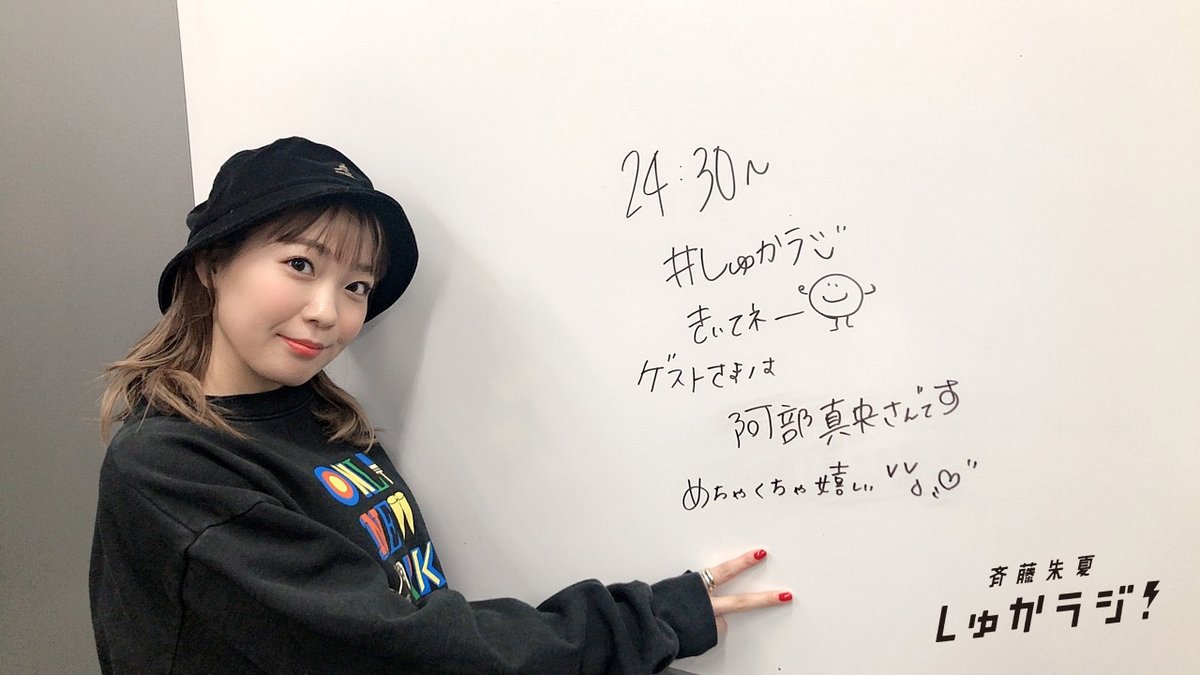 24:30~
#しゅかラジ
きいてネー
ゲストさまは
阿部真央さんです
めちゃくちゃ嬉しい
ONLY
NEW
斉藤朱夏
しゅかラジ!